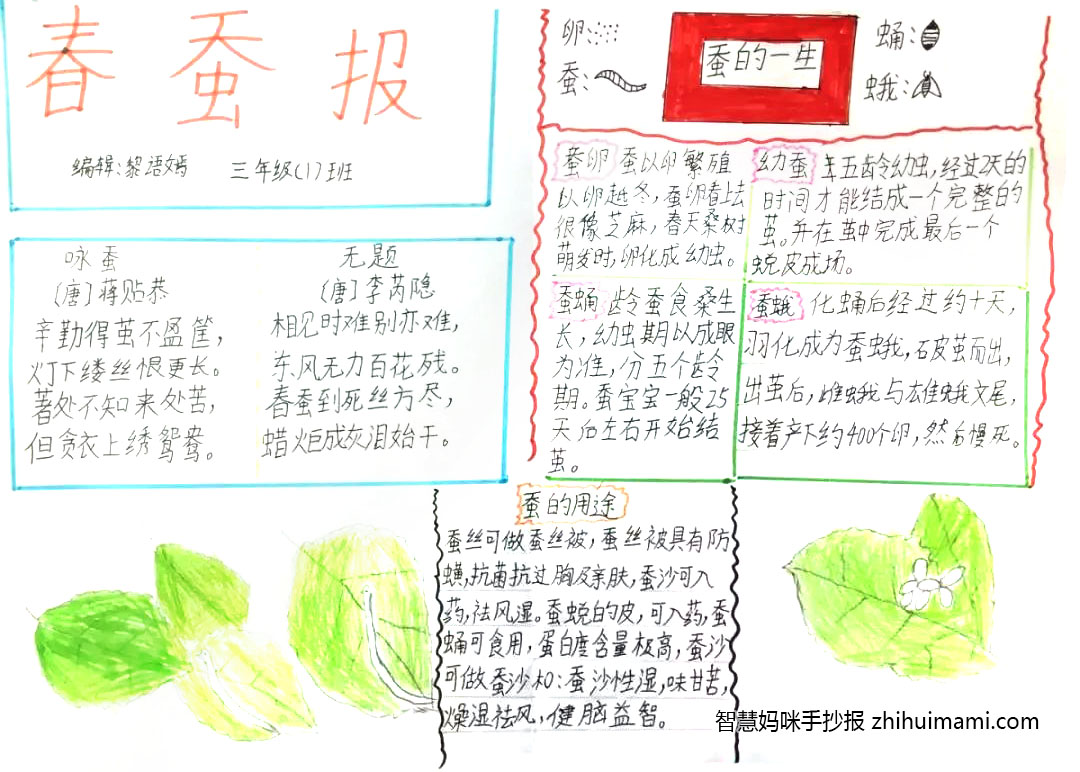 春蚕报
编辑:黎语嫣 三年级(1)班
咏蚕
(唐)蒋贻恭
辛勤得茧不盈筐,
灯下缕丝恨更长。
著处不知来处苦,
但贪衣上绣鸳鸯。
无题
(唐)李芮隐
相见时难别亦难,
东风无力百花残。
春蚕到死丝方尽,
蜡炬成灰泪始干。
卵:
蚕:
蚕的一生
蛹:
蛾:
蚕卵 蚕以卵繁殖
以卵越冬,蚕卵看上去
很像芝麻,春天桑树
萌发时,卵化成幼虫。
幼蚕 五龄幼虫,经过2天的
时间才能结成一个完整的
茧。并在茧中完成最后一个
蜕皮成场。
蚕蛹 龄蚕食桑生
长,幼虫期以成眠
为准,分五个龄
期。蚕宝宝一般25
天后左右开始结
茧。
蚕蛾 化蛹后经过约十天,
羽化成为蚕蛾,破茧而出,
出茧后,雌蛾与雄蛾交尾,
接着产下约400个卵,然后慢死。
蚕的用途
蚕丝可做蚕丝被,蚕丝被具有防
螨,抗菌抗过胸及亲肤,蚕沙可入
药,祛风湿。蚕蜕的皮,可入药,蚕
蛹可食用,蛋白含量极高,蚕沙
可做蚕沙和:蚕沙性湿,味甘苦,
燥湿祛风,健脑益智。
智慧妈咪手抄报 zhihuimami.com